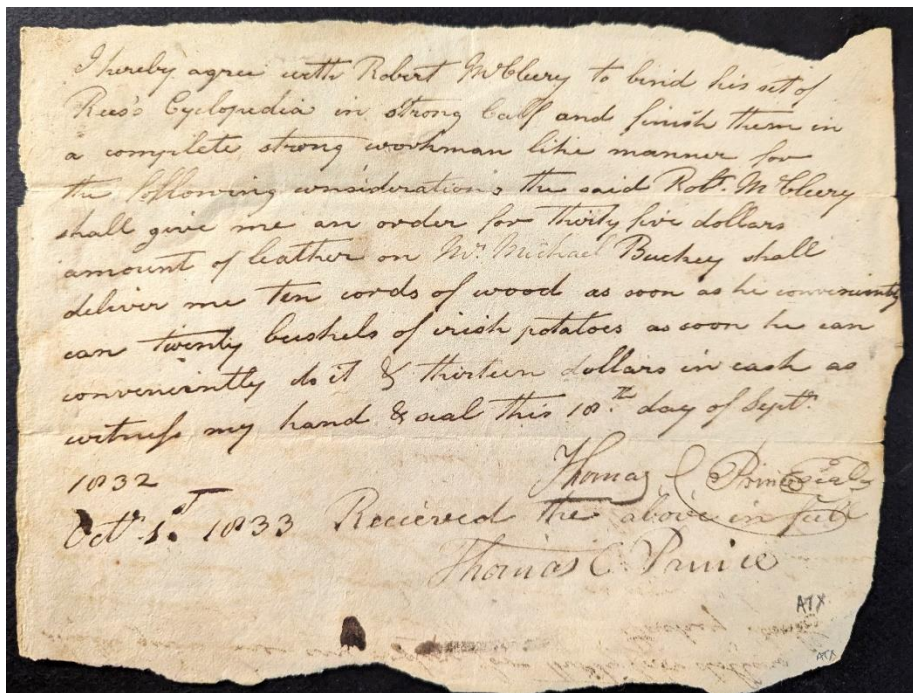 I hereby agree with Robert McCleery to bind his set of
Rees's Cyclopedia in strong Calf and finish them in
a complete strong workman like manner for
the following considerations the said Robt. McCleery
shall give me an order for thirty five dollars
amount of leather on Mr. Michael Buckey shall
deliver me ten cords of wood as soon as he conveniently
can twenty bushels of irish potatoes as soon he can
conveniently do it & thirteen dollars in cash as
witness my hand & seal this 18th. day of Septr.
1832
Thomas C Prince Seal
Octr. 1st 1833 Recieved the above in full
Thomas C. Prince
ATX
ATX